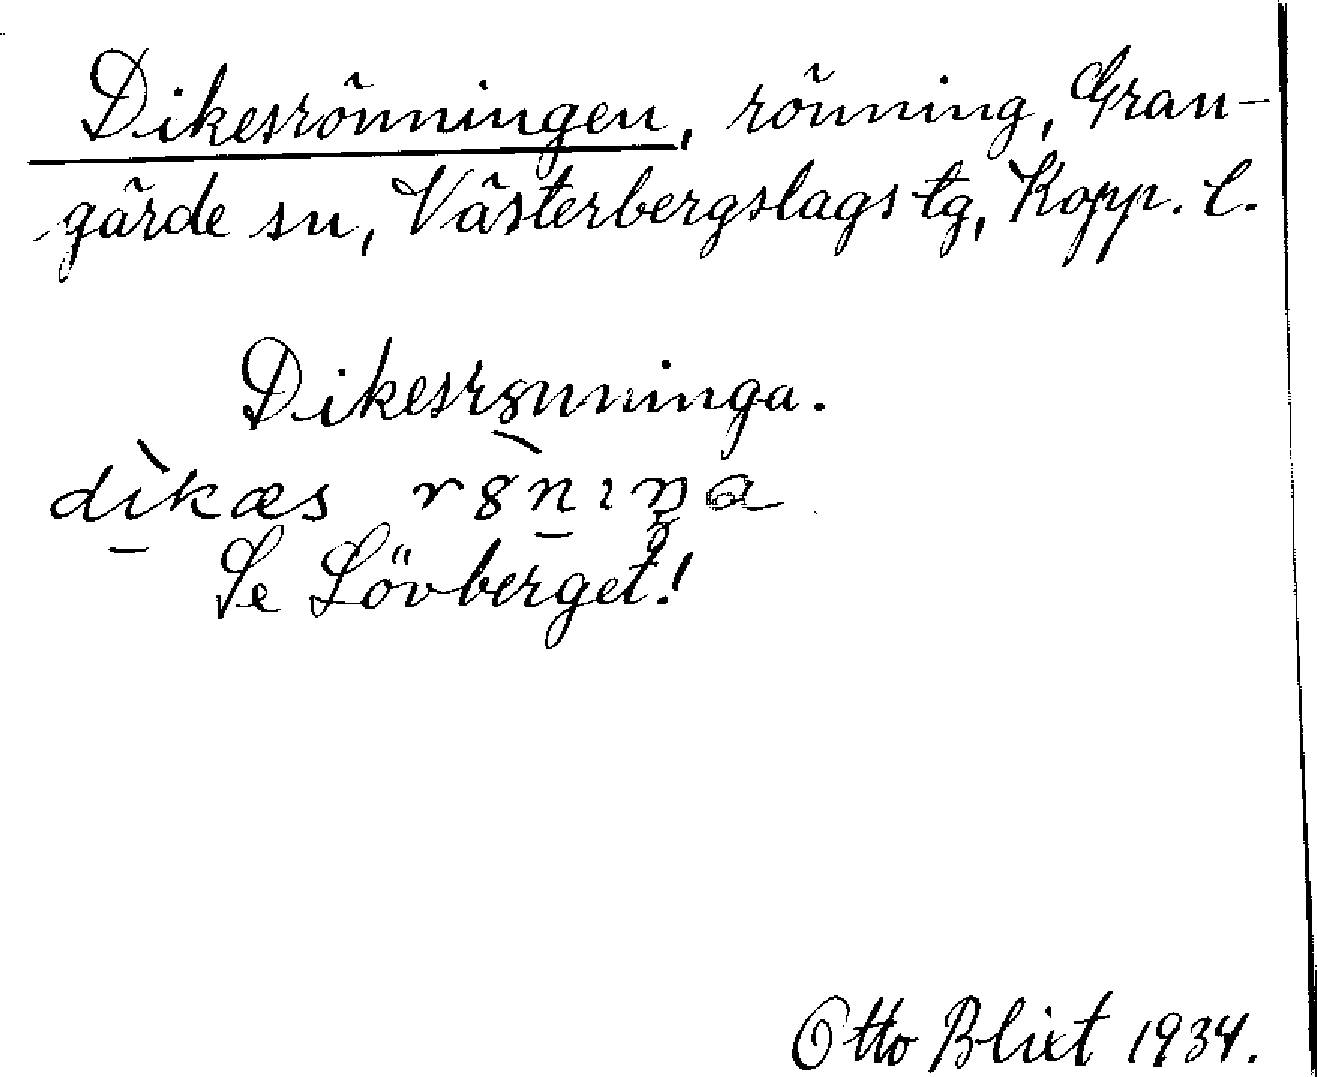 Dikesrönningen, rönning, Gran-
gärde sn, Västerbergslags tg, Kopp. l.
Dikesrȣnninga.
dìkæs rȣ̀nıŋa
Se Lövberget!
Otto Blixt 1934.